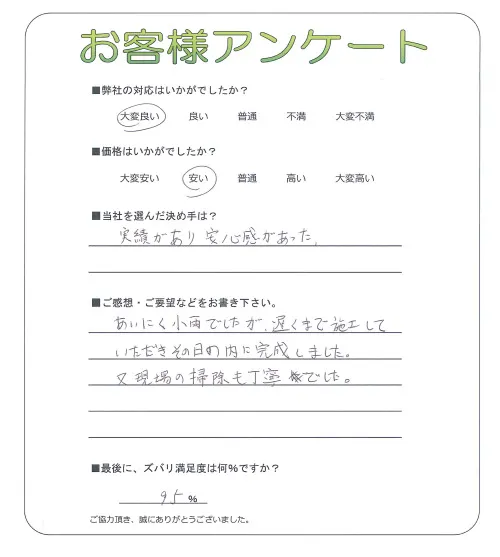 お客様アンケート
■弊社の対応はいかがでしたか？
大変良い 良い 普通 不満 大変不満
■価格はいかがでしたか？
大変安い 安い 普通 高い 大変高い
■当社を選んだ決め手は？
実績があり安心感があった。
■ご感想・ご要望などをお書き下さい。
あいにく小雨でしたが、遅くまで施工して
いただきその日の内に完成しました。
又現場の掃除も丁寧でした。
■最後に、ズバリ満足度は何%ですか？
95 %
ご協力頂き、誠にありがとうございました。